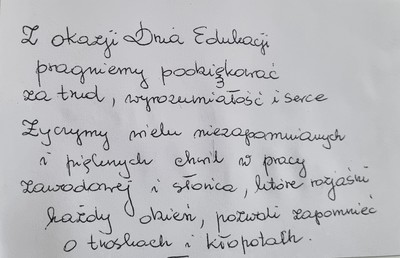 Z okazji Dnia Edukacji
pragniemy podziękować
za trud, wyrozumiałość i serce
Życzymy wielu niezapomnianych
i pięknych chwil w pracy
zawodowej i słońca, które rozjaśni
każdy dzień, pozwoli zapomnieć
o troskach i kłopotach.